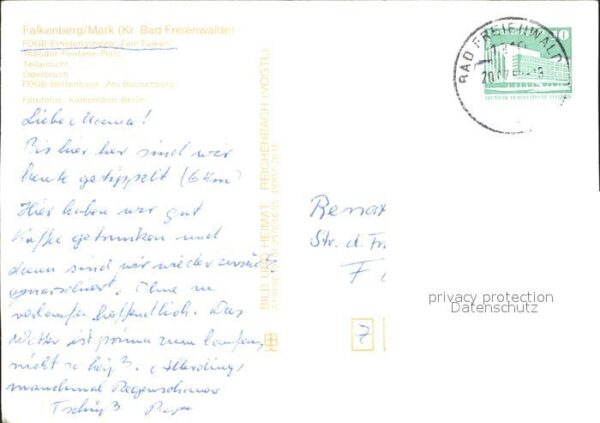 Falkenberg/Mark (Kr. Bad Freienwalde)
FDGB-Erholungsheim "Zum Falken"
Theodor-Fontane-Platz
Teilansicht
Oderbruch
FDGB-Bettenhaus "Am Buchenberg"
Farbfotos: Kampmann, Berlin
Liebe Mama!
Bis hier her sind wir
heute getippelt (6 km)
Hier haben wir gut
Kaffee getrunken und
dann sind wir wieder zurück
marschiert. Ohne zu
verlaufen hoffentlich. Das
Wetter ist prima zum laufen,
nicht so heiß. (Allerdings
manchmal Regenschauer
Tschüß
BILD UND HEIMAT REICHENBACH (VOGTL)
BAD FREIENWALDE
10
DEUTSCHE DEMOKRATISCHE REPUBLIK
Renat
Str. d. Fr
F
7
privacy protection
Datenschutz